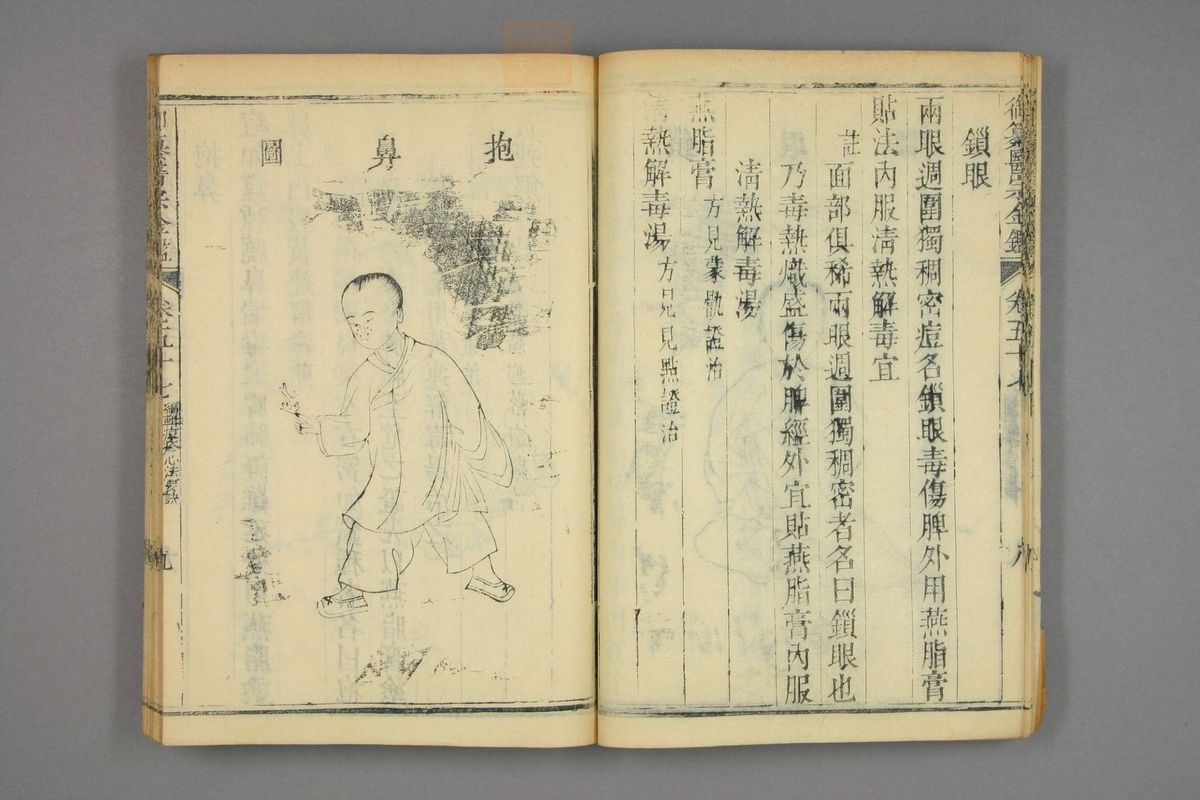 御纂醫宗金鑑
卷五十七
八
鎖眼
兩眼週圍獨稠密痘名鎖眼毒傷脾外用燕脂膏
貼法內服清熱解毒宜
註
面部俱稀兩眼週圍獨稠密者名曰鎖眼也
乃毒熱熾盛傷於脾經外宜貼燕脂膏內服
清熱解毒湯
燕脂膏 方見蒙骩證治
清熱解毒湯 方見見點證治
抱鼻圖
卷五十七
九